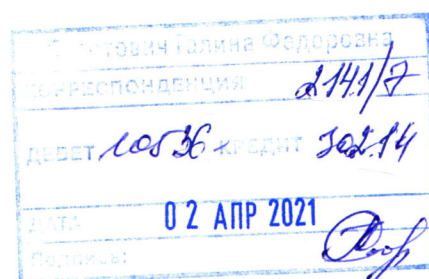 Галина Федоровна
КОРРЕСПОНДЕНЦИЯ 2141/7
ДЕБЕТ 10536 КРЕДИТ 302.14
ДАТА 02 АПР 2021
Подпись: